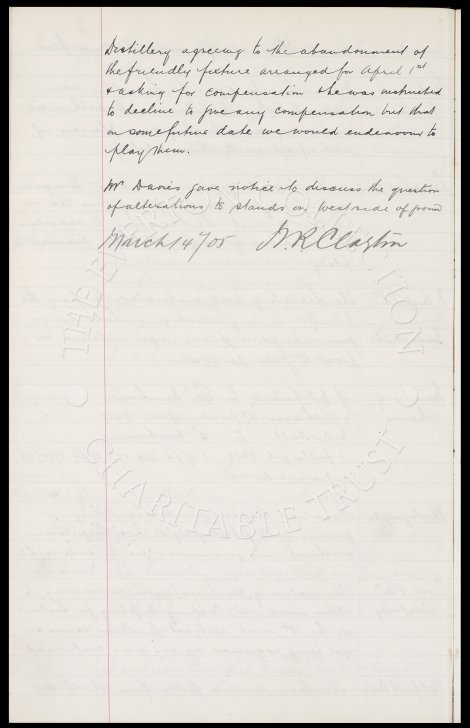 Distillery agreeing to the abandonment of
the friendly fixture arranged for April 1st
& asking for compensation & he was instructed
to decline to give any compensation but that
on some future date we would endeavour to
play them.
Mr Davies gave notice to discuss the question
of alterations to stands on West side of ground
March 14/05 W.R. Clayton
THE EVERTON COLLECTION
CHARITABLE TRUST